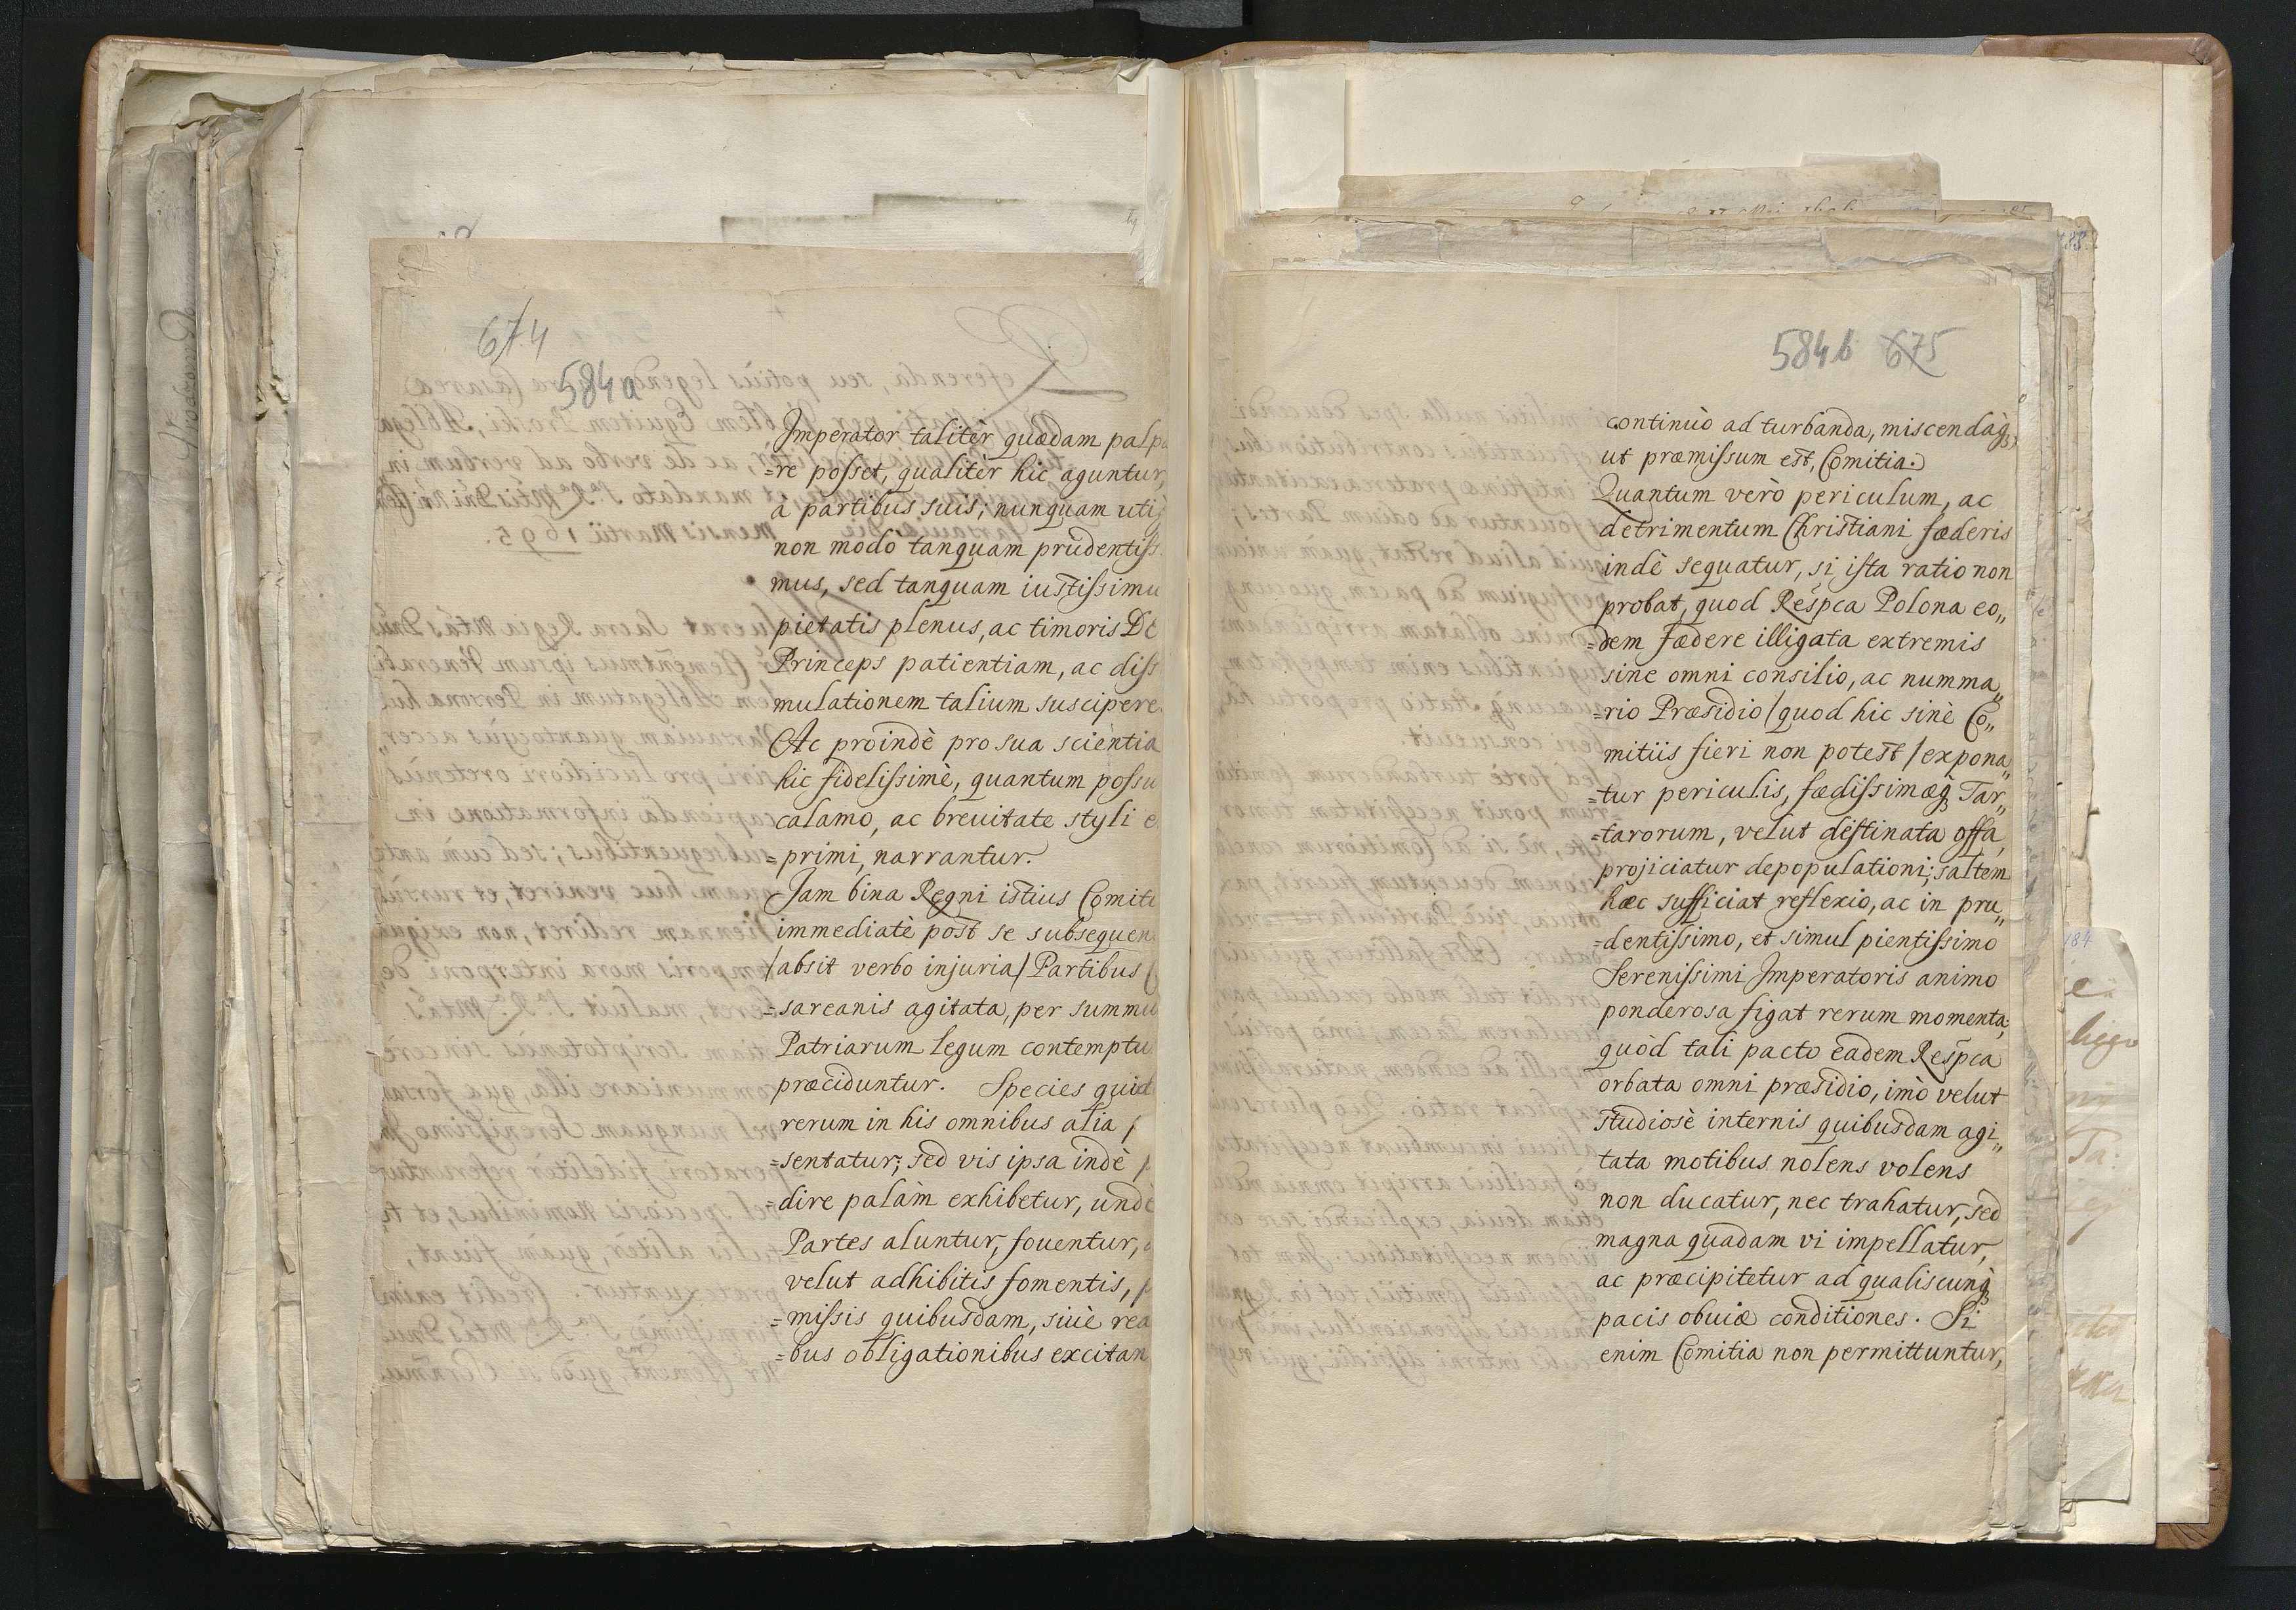 674
584a
Imperator talitèr quædam palpa
=re posset, qualitèr hic aguntur,
à partibus suis; nunquam utiq
non modo tanquam prudentiss
mus, sed tanquam iustissimu
pietatis plenus, ac timoris De
Princeps patientiam, ac diss
mulationem talium suscipere.
Ac proindè pro sua scientia
hic fidelissimè, quantum possu
calamo, ac breuitate styli e
=primi, narrantur.
Jam bina Regni istius Comiti
immediatè post se subsequen
/absit verbo injuria/ Partibus C
=sareanis agitata, per summu
Patriarum legum contemptu
præciduntur. Species quid
rerum in his omnibus alia p
=sentatur; sed vis ipsa indè p
=dire palàm exhibetur, undè
Partes aluntur, fouentur,
velut adhibitis fomentis, p
=missis quibusdam, siuè rea
=bus obligationibus excitan
584b 675
continuò ad turbanda, miscendaq́,
ut præmissum est, Comitia.
Quantum verò periculum, ac
detrimentum Christiani fæderis
indè sequatur, si ista ratio non
probat, quod Respca Polona eo„
=dem fædere illigata extremis
sine omni consilio, ac numma„
=rio Præsidio /quod hic sinè Co„
mitiis fieri non potest/ expona„
=tur periculis, fædissimæq́ Tar„
=tarorum, velut destinata offa,
projiciatur depopulationi; saltem
hæc sufficiat reflexio, ac in pru„
=dentissimo, et simul pientissimo
Serenissimi Imperatoris animo
ponderosa figat rerum momenta,
quòd tali pacto eàdem Respca
orbata omni præsidio, imò velut
studiosè internis quibusdam agi„
tata motibus nolens volens
non ducatur, nec trahatur, sed
magna quadam vi impellatur,
ac præcipitetur ad qualiscunq́
pacis obuiæ conditiones. Si
enim Comitia non permittuntur,